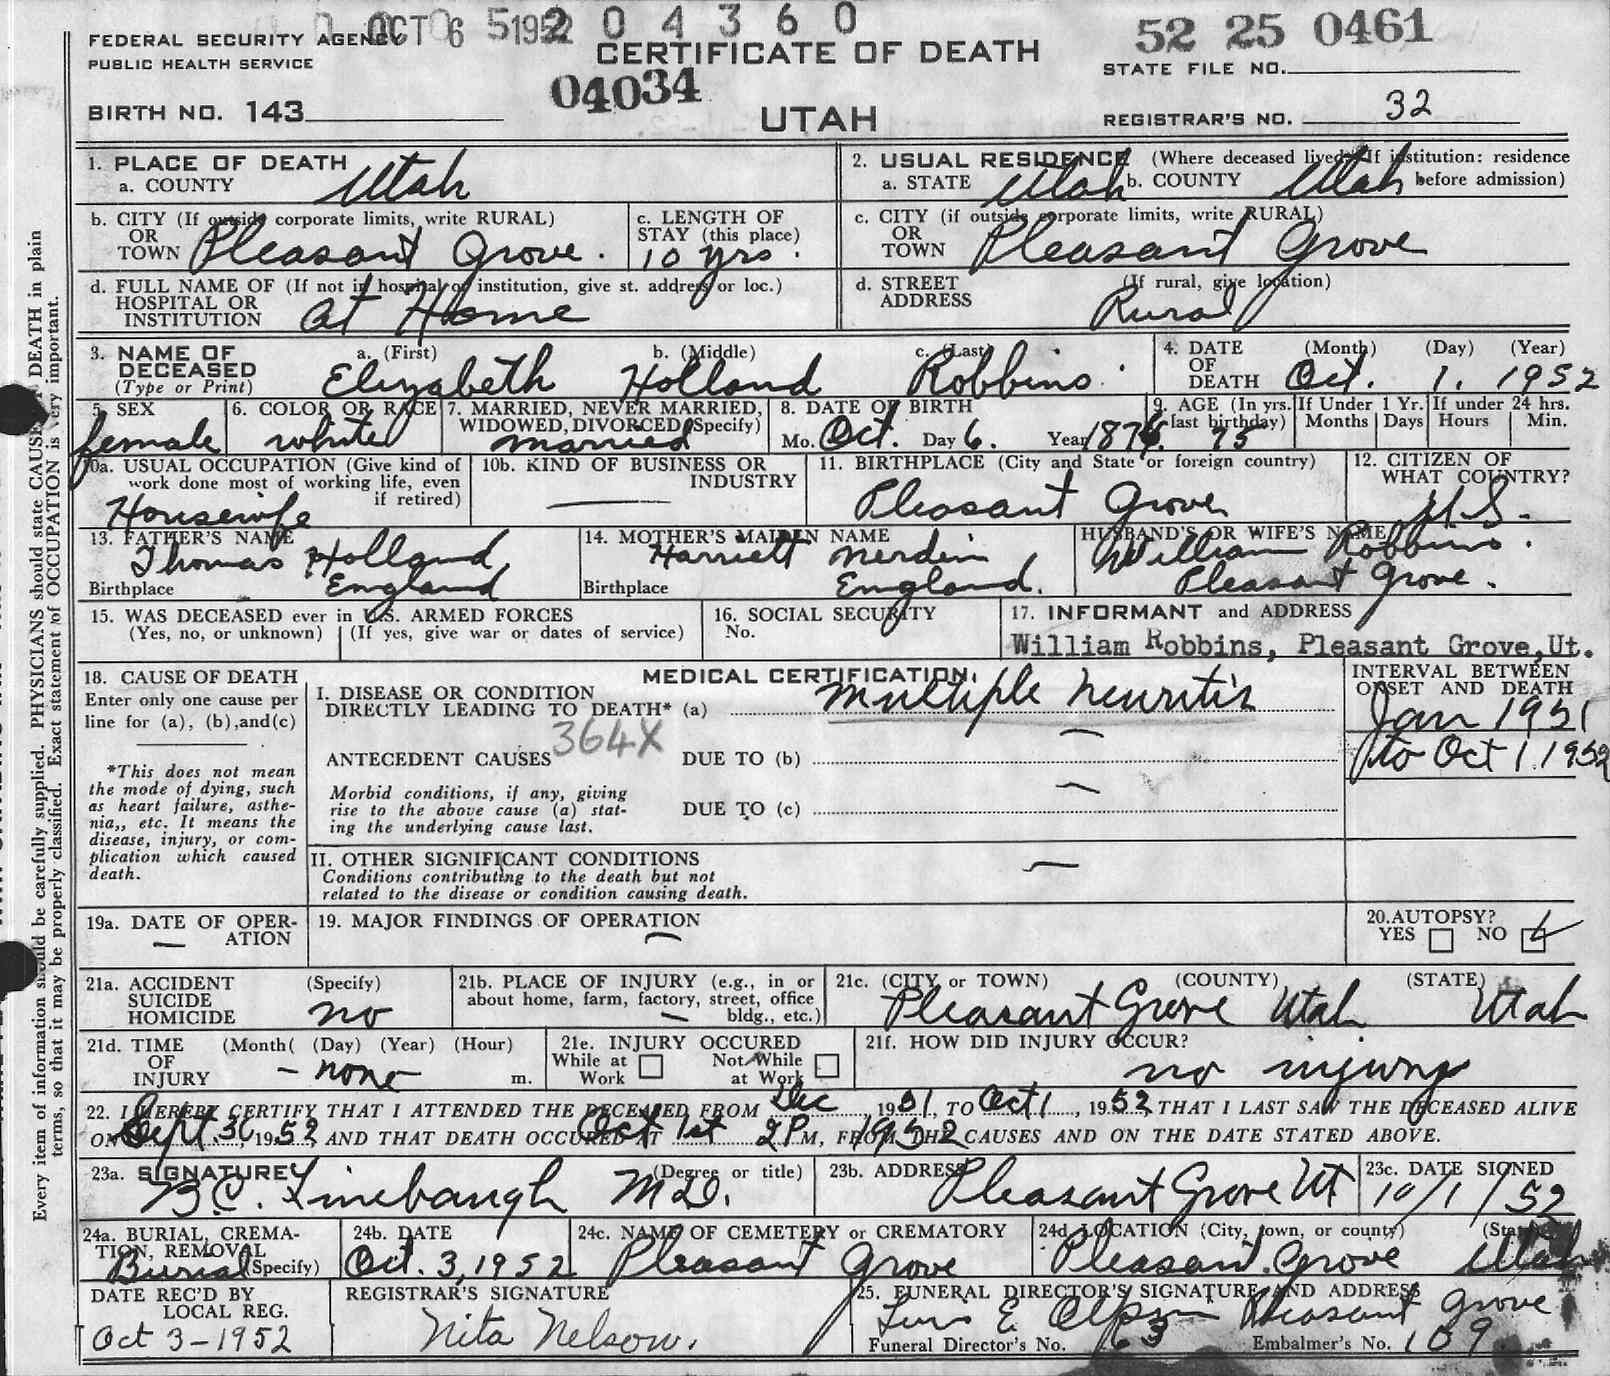 OCT 6 1952 204360
52 25 0461
FEDERAL SECURITY AGENCY
PUBLIC HEALTH SERVICE
CERTIFICATE OF DEATH
STATE FILE NO.
04034
BIRTH NO. 143
UTAH
REGISTRAR'S NO. 32
1. PLACE OF DEATH
a. COUNTY Utah
2. USUAL RESIDENCE (Where deceased lived. If institution: residence
a. STATE Utah b. COUNTY Utah before admission)
b. CITY (If outside corporate limits, write RURAL)
OR
TOWN Pleasant Grove.
c. LENGTH OF
STAY (this place)
10 yrs.
c. CITY (if outside corporate limits, write RURAL)
OR
TOWN Pleasant Grove
d. FULL NAME OF (If not in hospital or institution, give st. address or loc.)
HOSPITAL OR
INSTITUTION At Home
d. STREET (If rural, give location)
ADDRESS Rural
3. NAME OF a. (First) b. (Middle) c. (Last)
DECEASED
(Type or Print) Elizabeth Holland Robbins
4. DATE (Month) (Day) (Year)
OF
DEATH Oct. 1. 1952
5. SEX
female
6. COLOR OR RACE
white
7. MARRIED, NEVER MARRIED,
WIDOWED, DIVORCED (Specify)
married
8. DATE OF BIRTH
Mo. Oct. Day 6. Year
9. AGE (In yrs. last birthday) 75
If Under 1 Yr.
Months Days
If under 24 hrs.
Hours Min.
10a. USUAL OCCUPATION (Give kind of
work done most of working life, even
if retired)
Housewife
10b. KIND OF BUSINESS OR
INDUSTRY
11. BIRTHPLACE (City and State or foreign country)
Pleasant Grove
12. CITIZEN OF
WHAT COUNTRY?
U.S.
13. FATHER'S NAME
Thomas Holland
Birthplace England
14. MOTHER'S MAIDEN NAME
Harriett
Birthplace England.
HUSBAND'S OR WIFE'S NAME
William Robbins.
Pleasant Grove.
15. WAS DECEASED ever in U.S. ARMED FORCES
(Yes, no, or unknown) (If yes, give war or dates of service)
16. SOCIAL SECURITY
No.
17. INFORMANT and ADDRESS
William Robbins, Pleasant Grove, Ut.
18. CAUSE OF DEATH
Enter only one cause per
line for (a), (b),and(c)
*This does not mean
the mode of dying, such
as heart failure, asthe-
nia,, etc. It means the
disease, injury, or com-
plication which caused
death.
MEDICAL CERTIFICATION
I. DISEASE OR CONDITION
DIRECTLY LEADING TO DEATH* (a) Multiple Neuritis
364X
ANTECEDENT CAUSES DUE TO (b)
Morbid conditions, if any, giving
rise to the above cause (a) stat-
ing the underlying cause last.
DUE TO (c)
II. OTHER SIGNIFICANT CONDITIONS
Conditions contributing to the death but not
related to the disease or condition causing death.
INTERVAL BETWEEN
ONSET AND DEATH
Jan 1951
to Oct 1. 1952
19a. DATE OF OPER-
ATION
19. MAJOR FINDINGS OF OPERATION
20.AUTOPSY?
YES NO
21a. ACCIDENT (Specify)
SUICIDE
HOMICIDE no
21b. PLACE OF INJURY (e.g., in or
about home, farm, factory, street, office
bldg., etc.)
21c. (CITY or TOWN) (COUNTY) (STATE)
Pleasant Grove Utah Utah
21d. TIME (Month( (Day) (Year) (Hour)
OF
INJURY - none m.
21e. INJURY OCCURED
While at Work Not While at Work
21f. HOW DID INJURY OCCUR?
no injury
22. I HEREBY CERTIFY THAT I ATTENDED THE DECEASED FROM Dec 1951, TO Oct 1, 1952, THAT I LAST SAW THE DECEASED ALIVE
ON Sept. 30, 1952 AND THAT DEATH OCCURED AT Oct 1st 2 P M, 1952 FROM THE CAUSES AND ON THE DATE STATED ABOVE.
23a. SIGNATURE (Degree or title)
B.C. Linebaugh M.D.
23b. ADDRESS
Pleasant Grove Ut
23c. DATE SIGNED
10/1/52
24a. BURIAL, CREMA-
TION, REMOVAL
Burial (Specify)
24b. DATE
Oct. 3, 1952
24c. NAME OF CEMETERY or CREMATORY
Pleasant Grove
24d. LOCATION (City, town, or county) (State)
Pleasant Grove Utah
DATE REC'D BY
LOCAL REG.
Oct 3-1952
REGISTRAR'S SIGNATURE
Nita Nelson.
25. FUNERAL DIRECTOR'S SIGNATURE AND ADDRESS
E. Pleasant Grove
Funeral Director's No. 63 Embalmer's No. 109
Every item of information should be carefully supplied. PHYSICIANS should state CAUSE OF DEATH in plain
terms, so that it may be properly classified. Exact statement of OCCUPATION is very important.